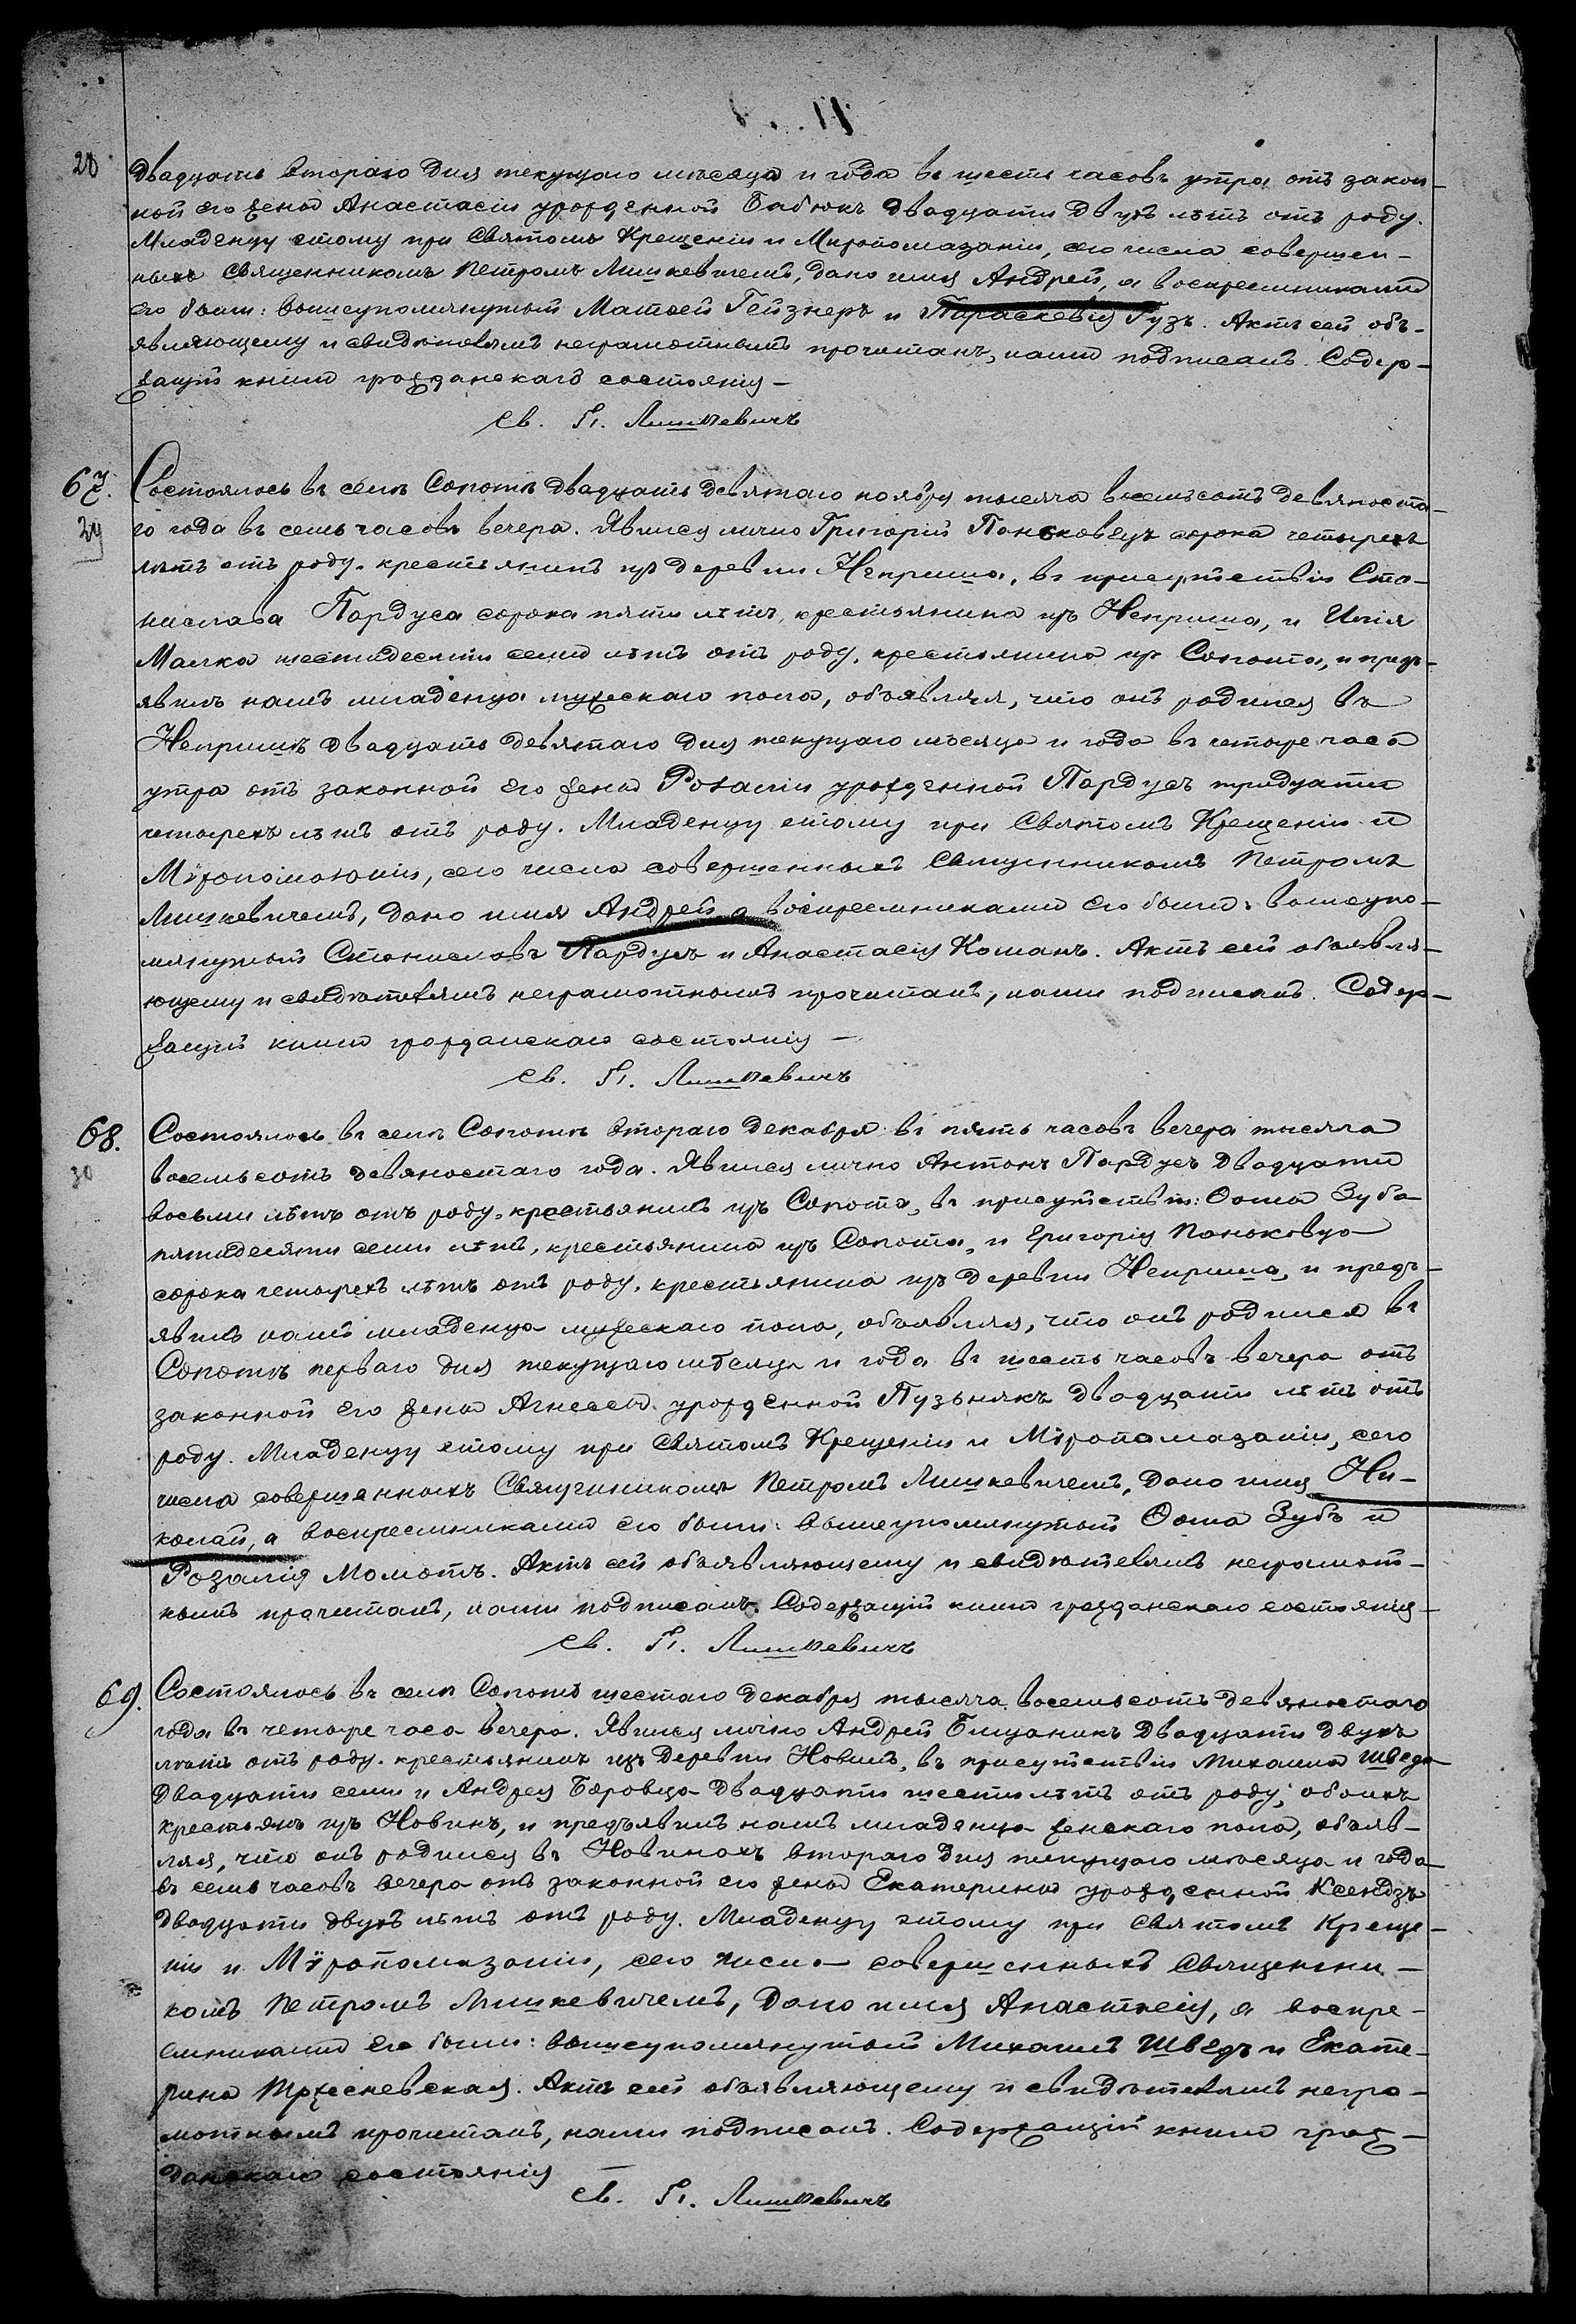 28
двадцать втораго дня текущаго мѣсяца и года въ шесть часовъ утра отъ закон-
ной его жены Анастасіи урожденной Бабюкъ двадцати двухъ лѣтъ отъ роду.
Младенцу етому при Святомъ Крещеніи и Миропомазаніи, сего числа совершен-
ныхъ Священникомъ Петромъ Лишкевичемъ, дано имя Андрей, а воспреемниками
его были: вышеупомянутый Матѳей Гейзнеръ и Параскевія Гузъ. Актъ сей объ-
являющему и свидѣтелямъ неграмотнымъ прочитанъ, нами подписанъ. Содер-
жащій книги гражданскаго состоянія –
Св. П. Лишкевичъ
67. Состоялось въ селѣ Сопотѣ двадцать девятаго ноября тысяча восемьсотъ девяноста-
29 го года въ семь часовъ вечера. Явился лично Григорій Паньковецъ сорока четырехъ
лѣтъ отъ роду, крестьянинъ изъ деревни Неприша, въ присутствіи Ста-
нислава Пардуса сорока пяти лѣтъ, крестьянина изъ Неприша, и Илія
Малка шестидесяти семи лѣтъ отъ роду, крестьянина изъ Сопота, и предъ-
явилъ намъ младенца мужескаго пола, объявляя, что онъ родился въ
Непришѣ двадцать девятаго дня текущаго мѣсяца и года въ четыре часа
утра отъ законной его жены Розаліи урожденной Пардусъ тридцати
четырехъ лѣтъ отъ роду. Младенцу етому при Святомъ Крещеніи и
Мѵропомазаніи, сего числа совершенныхъ Священникомъ Петромъ
Лишкевичемъ, дано имя Андрей а воспреемниками его были: вышеупо-
мянутый Станиславъ Пардусъ и Анастасія Команъ. Актъ сей объявля-
ющему и свидѣтелямъ неграмотнымъ прочитанъ, нами подписанъ. Содер-
жащій книги гражданскаго состоянія –
Св. П. Лишкевичъ
68. Состоялось въ селѣ Сопотѣ втораго декабря въ пять часовъ вечера тысяча
30 восемьсотъ девяностаго года. Явился лично Антонъ Пардусъ двадцати
восьми лѣтъ отъ роду, крестьянинъ изъ Сопота, въ присутствіи: Ѳома Зуба
пятидесяти семи лѣтъ, крестьянина изъ Сопота, и Григорія Паньковца
сорока четырехъ лѣтъ отъ роду, крестьянина изъ деревни Неприша, и предъ-
явилъ намъ младенца мужескаго пола, объявляя, что онъ родился въ
Сопотѣ перваго дня текущаго мѣсяца и года въ шесть часовъ вечера отъ
законной его жены Агнессы урожденной Пузьнякъ двадцати лѣтъ отъ
роду. Младенцу етому при Святомъ Крещеніи и Мѵропомазаніи, сего
числа совершенныхъ Священникомъ Петромъ Лишкевичемъ, дано имя Ни-
колай, а воспреемниками его были: вышеупомянутый Ѳома Зубъ и
Розалія Момотъ. Актъ сей объявляющему и свидѣтелямъ неграмот-
нымъ прочитанъ, нами подписанъ. Содержащій книги гражданскаго состоянія –
Св. П. Лишкевичъ
69. Состоялось въ селѣ Сопотѣ шестаго декабря тысяча восемьсотъ девяностаго
года въ четыре часа вечера. Явился лично Андрей двадцати двухъ
лѣтъ отъ роду, крестьянинъ изъ деревни Новинъ, въ присутствіи Михаила Шведа
двадцати семи и Андрея Боровца двадцати шести лѣтъ отъ роду; обоихъ
крестьянъ изъ Новинъ, и предъявилъ намъ младенца женскаго пола, объяв-
ляя, что онъ родился въ Новинахъ втораго дня текущаго мѣсяца и года
въ семь часовъ вечера отъ законной его жены Екатерины урожденной Ксендзъ
двадцати двухъ лѣтъ отъ роду. Младенцу этому при Святомъ Креще-
ніи и Мѵропомазаніи, сего числа совершенныхъ Священни-
комъ Петромъ Лишкевичемъ, дано имя Анастасія, а воспре-
емниками его были: вышеупомянутый Михаилъ Шведъ и Екате-
рина Тржесневская. Актъ сей объявляющему и свидѣтелямъ негра-
мотнымъ прочитанъ, нами подписанъ. Содержащій книги граж-
данскаго состоянія –
Св. П. Лишкевичъ